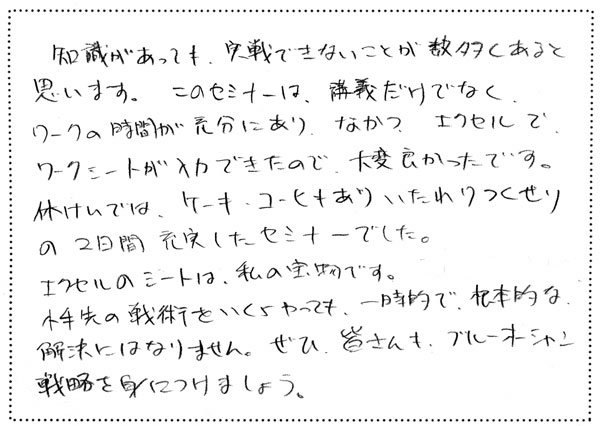 知識があっても、実戦できないことが数多くあると
思います。このセミナーは、講義だけでなく、
ワークの時間が充分にあり、なかつ エクセルで、
ワークシートが入力できたので、大変良かったです。
休けいでは、ケーキ・コーヒもあり いたれりつくせり
の 2日間 充実したセミナーでした。
エクセルのシートは、私の宝物です。
小手先の戦術をいくらやっても、一時的で、根本的な
解決にはなりません。ぜひ、皆さんも、ブルーオーシャン
戦略を身につけましょう。